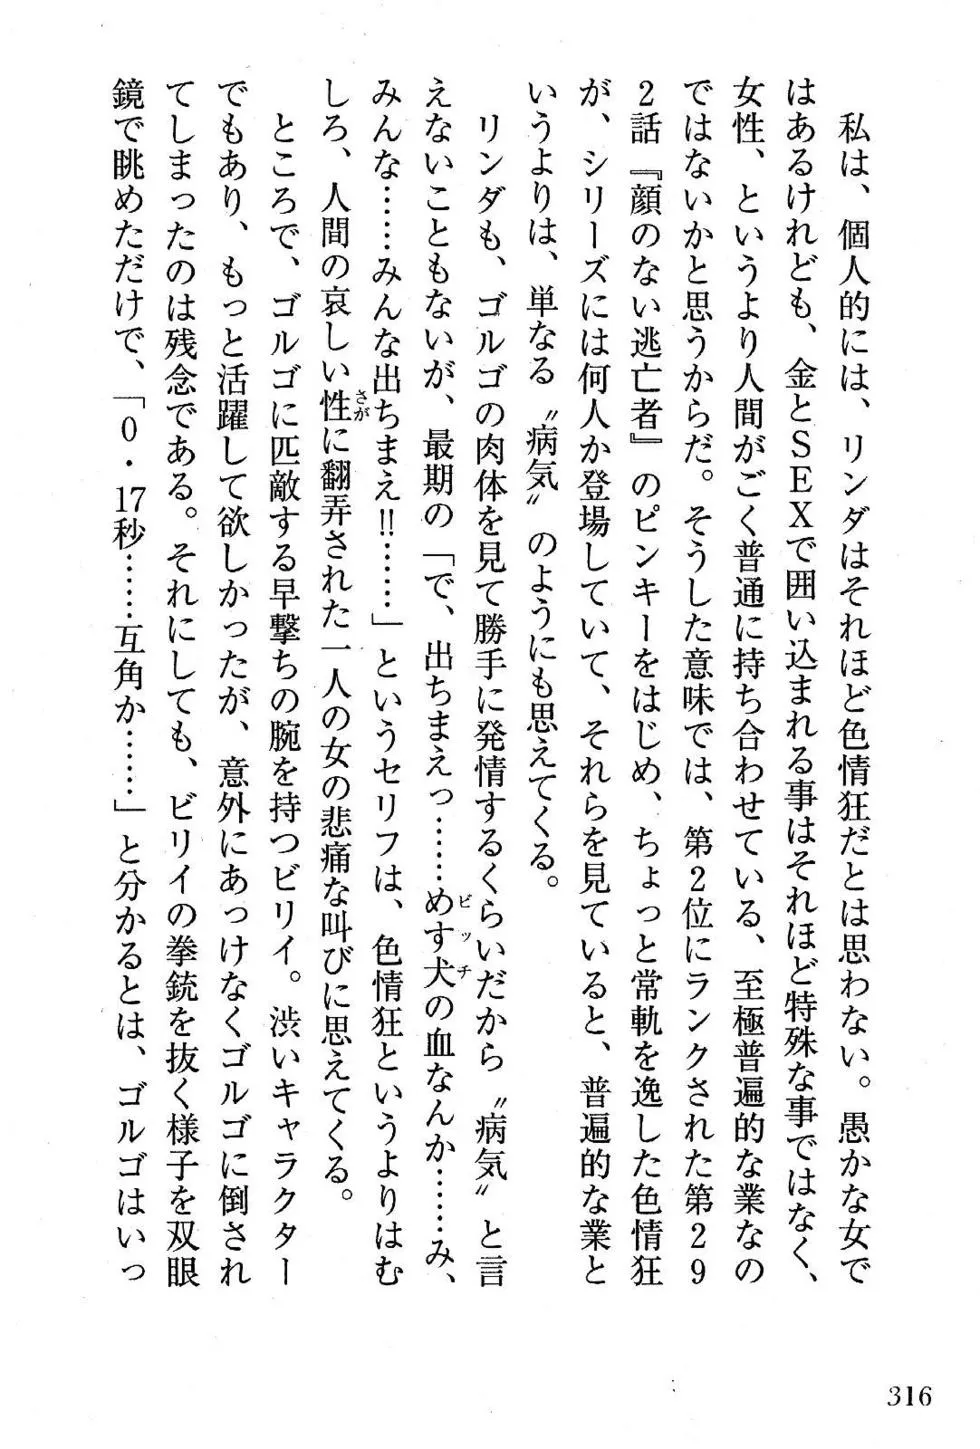 私は、個人的には、リンダはそれほど色情狂だとは思わない。愚かな女で
はあるけれども、金とSEXで囲い込まれる事はそれほど特殊な事ではなく、
女性、というより人間がごく普通に持ち合わせている、至極普遍的な業なの
ではないかと思うからだ。そうした意味では、第2位にランクされた第29
2話『顔のない逃亡者』のピンキーをはじめ、ちょっと常軌を逸した色情狂
が、シリーズには何人か登場していて、それらを見ていると、普遍的な業と
いうよりは、単なる〝病気〟のようにも思えてくる。
リンダも、ゴルゴの肉体を見て勝手に発情するくらいだから〝病気〟と言
えないこともないが、最期の「で、出ちまえっ……めす犬の血なんか……み、
みんな……みんな出ちまえ!!……」というセリフは、色情狂というよりはむ
しろ、人間の哀しい性に翻弄された一人の女の悲痛な叫びに思えてくる。
ところで、ゴルゴに匹敵する早撃ちの腕を持つビリイ。渋いキャラクター
でもあり、もっと活躍して欲しかったが、意外にあっけなくゴルゴに倒され
てしまったのは残念である。それにしても、ビリイの拳銃を抜く様子を双眼
鏡で眺めただけで、「0・17秒……互角か……」と分かるとは、ゴルゴはいっ
316